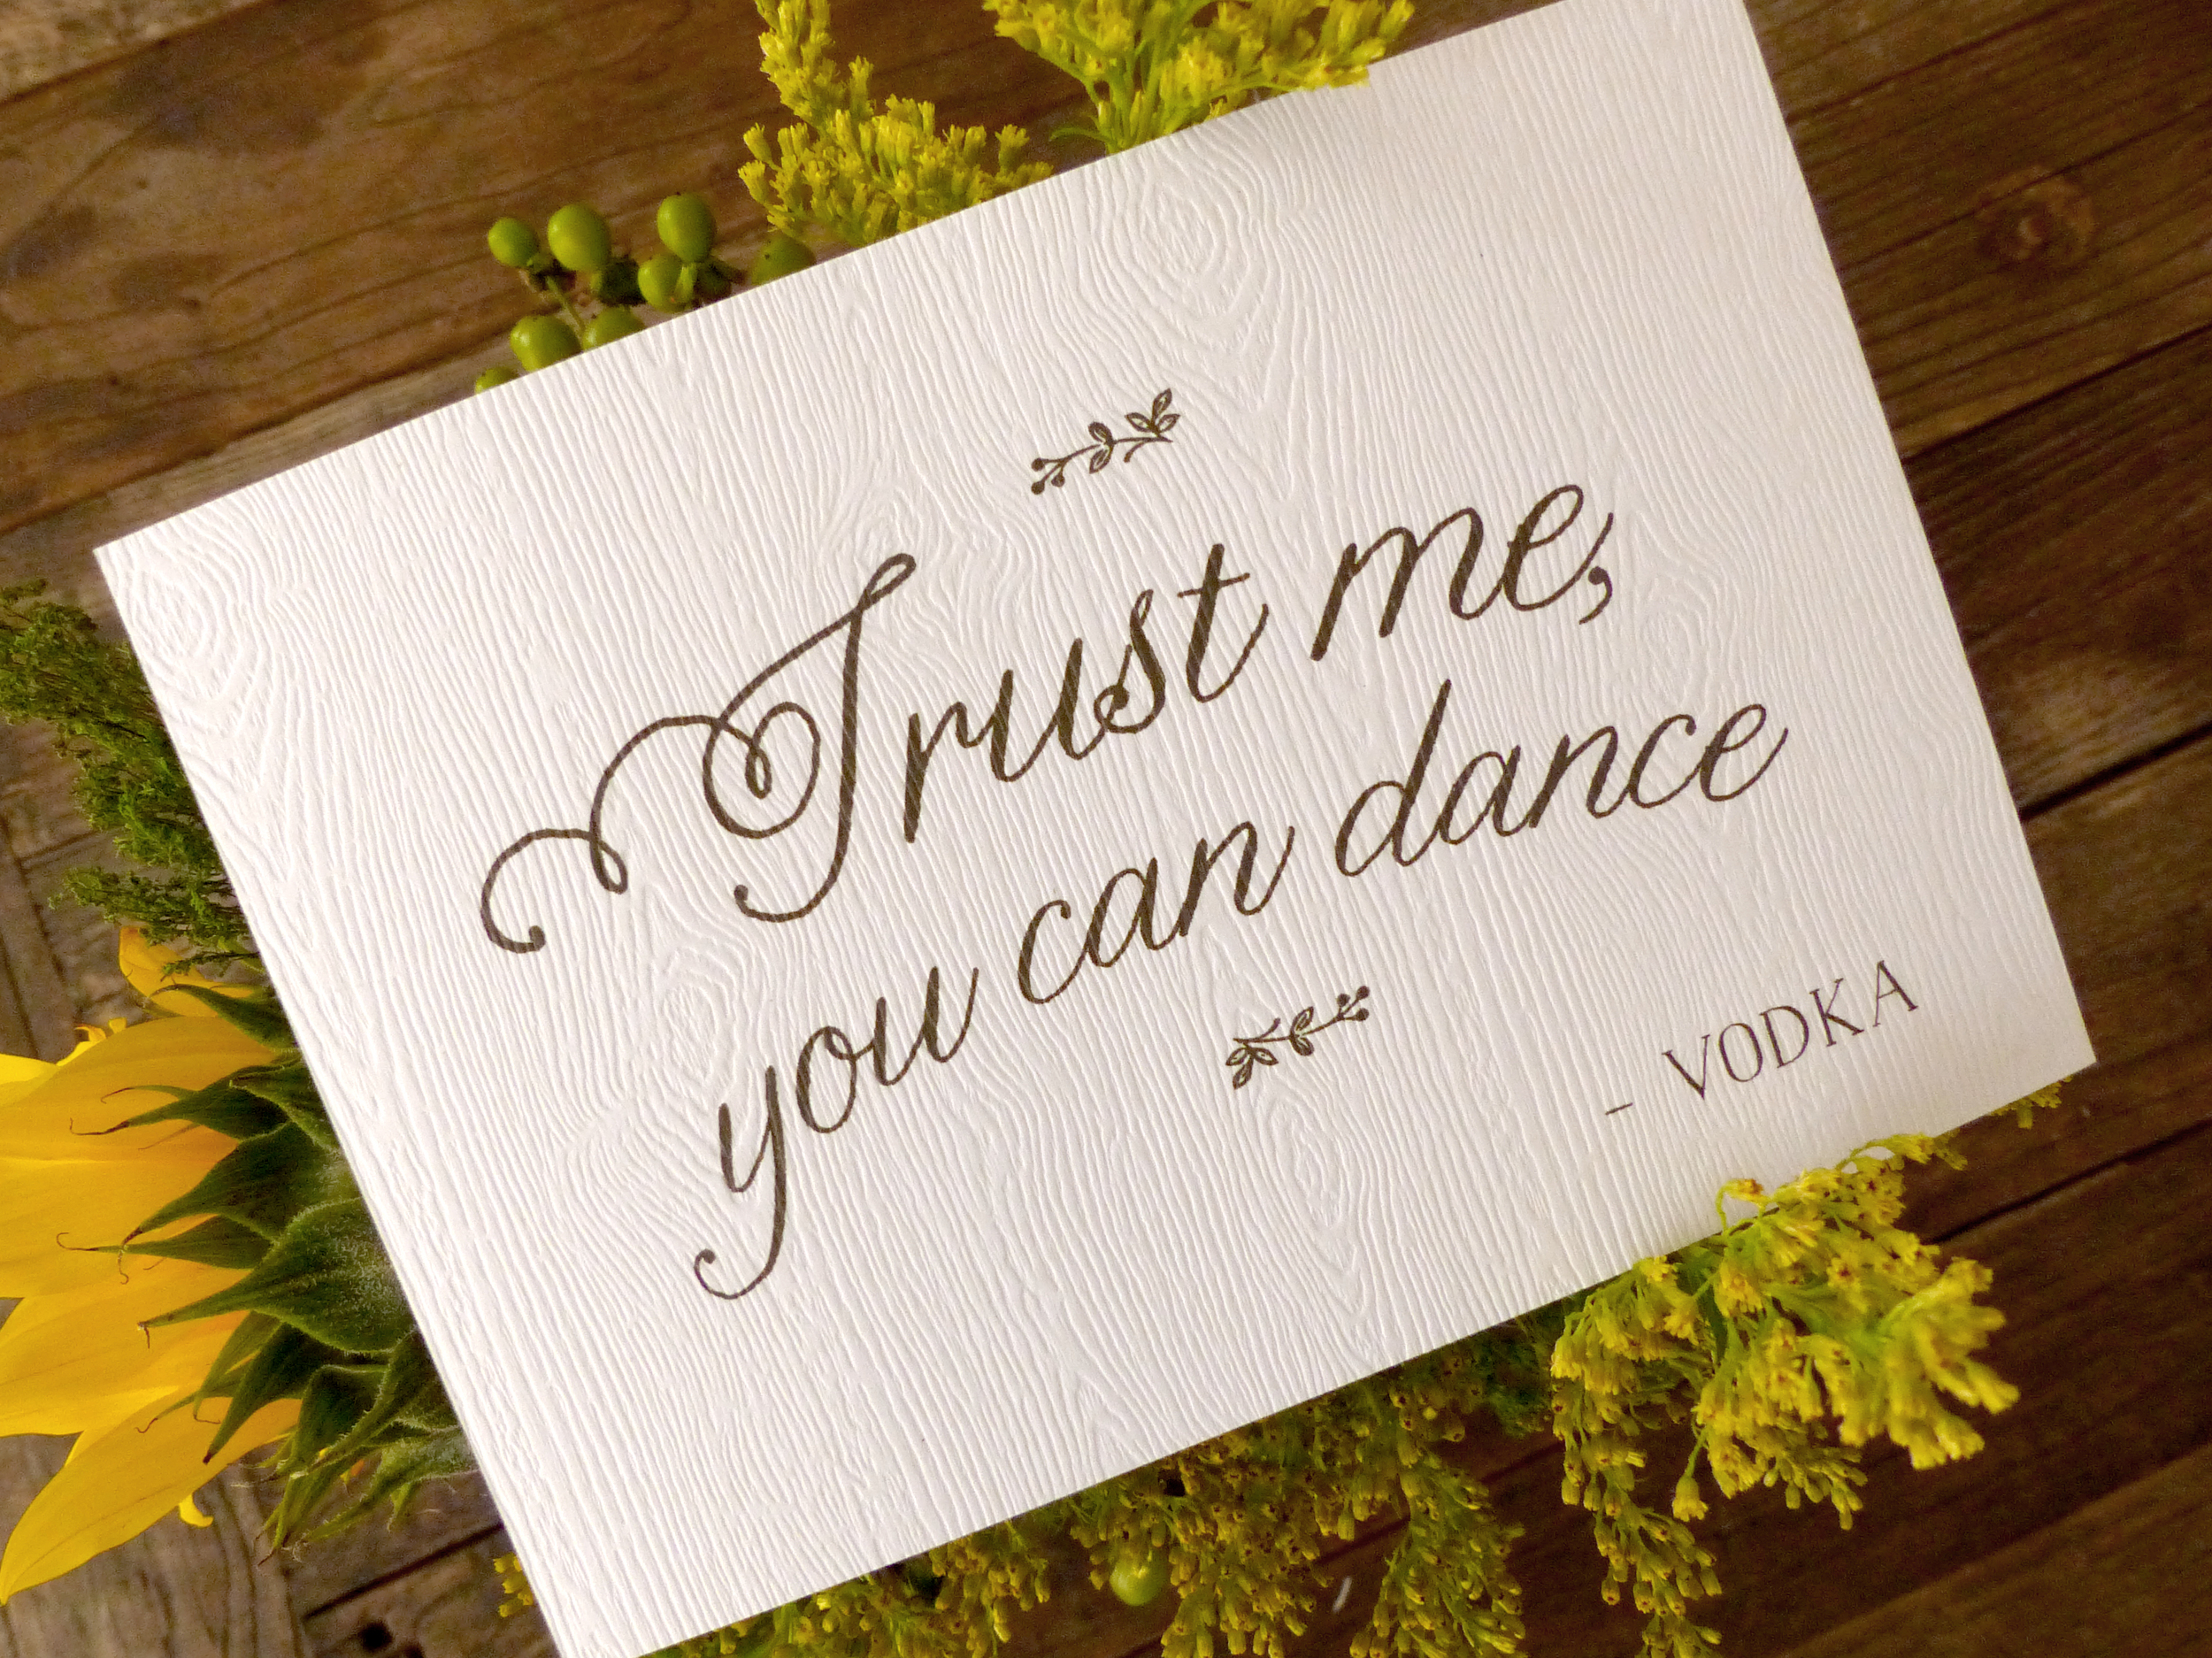 Trust me,
you can dance
- VODKA